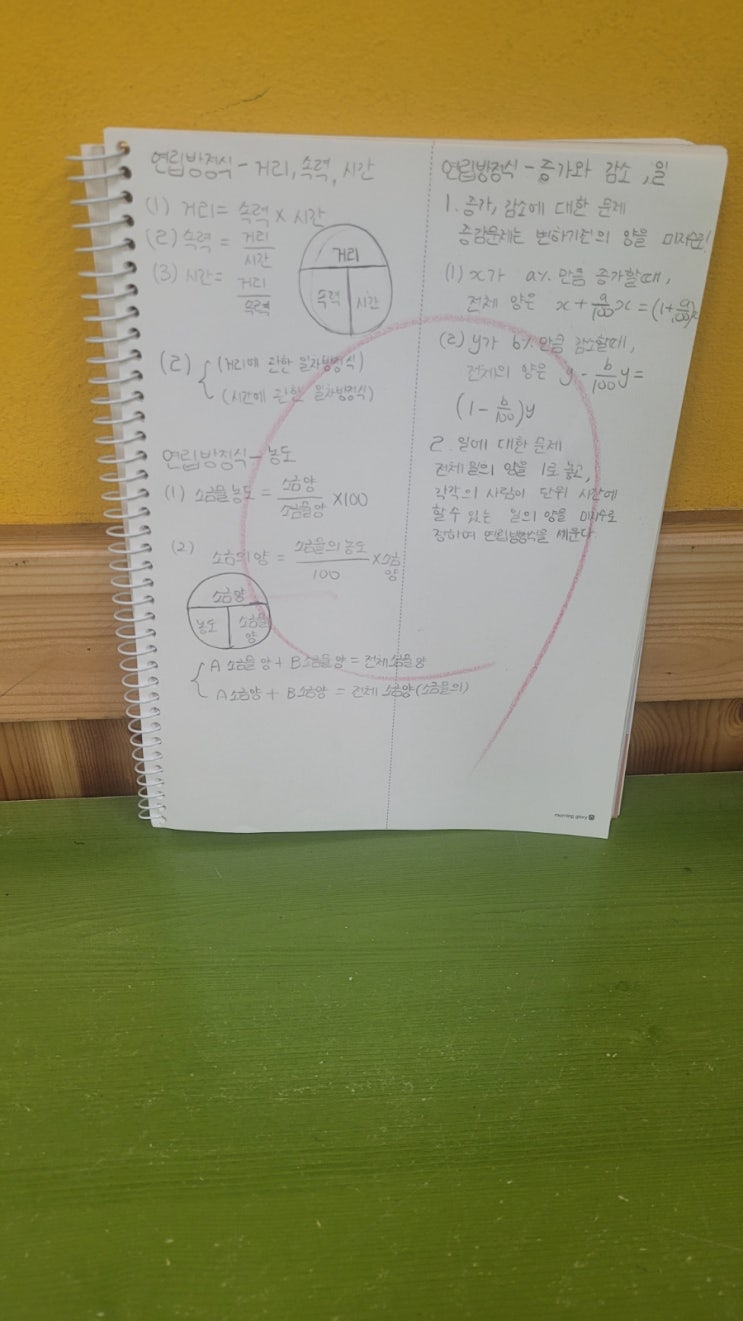 연립방정식 - 거리, 속력, 시간
(1) 거리 = 속력 × 시간
(2) 속력 = 거리/시간
(3) 시간 = 거리/속력
거리
속력 시간
(2) { (거리에 관한 일차방정식)
(시간에 관한 일차방정식)
연립방정식 - 농도
(1) 소금물농도 = 소금양/소금물양 ×100
(2) 소금의 양 = 소금물의 농도/100 × 소금양
소금양
농도 소금물양
{ A 소금물 양 + B 소금물 양 = 전체 소금물 양
A 소금양 + B 소금양 = 전체 소금양 (소금물의)
연립방정식 - 증가와 감소, 일
1. 증가, 감소에 대한 문제
증감문제는 변하기전의 양을 미지수로!
(1) x가 a% 만큼 증가할때,
전체 양은 x + a/100 x = (1 + a/100)x
(2) y가 b% 만큼 감소할때,
전체의 양은 y - b/100 y =
(1 - b/100)y
2. 일에 대한 문제
전체 일의 양을 1로 놓고,
각각의 사람이 단위 시간에
할 수 있는 일의 양을 미지수로
정하여 연립방정식을 세운다.
morning glory